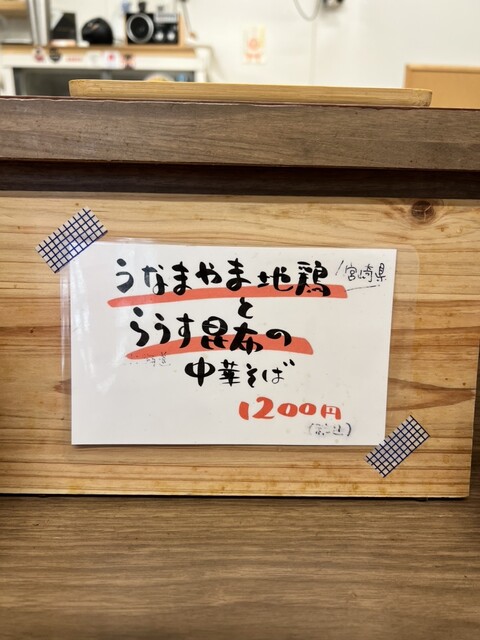 うなまやま地鶏
宮崎県
と
らうす昆布の
中華そば
1200円
(税込)